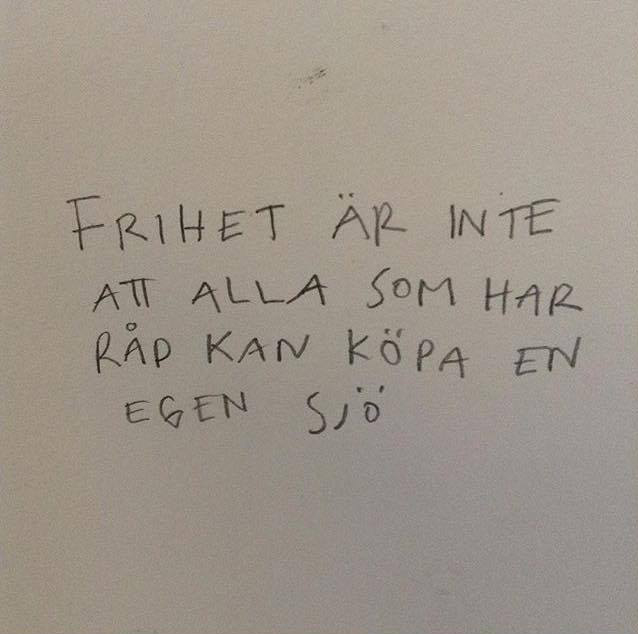 FRIHET ÄR INTE
ATT ALLA SOM HAR
RÅD KAN KÖPA EN
EGEN SJÖ